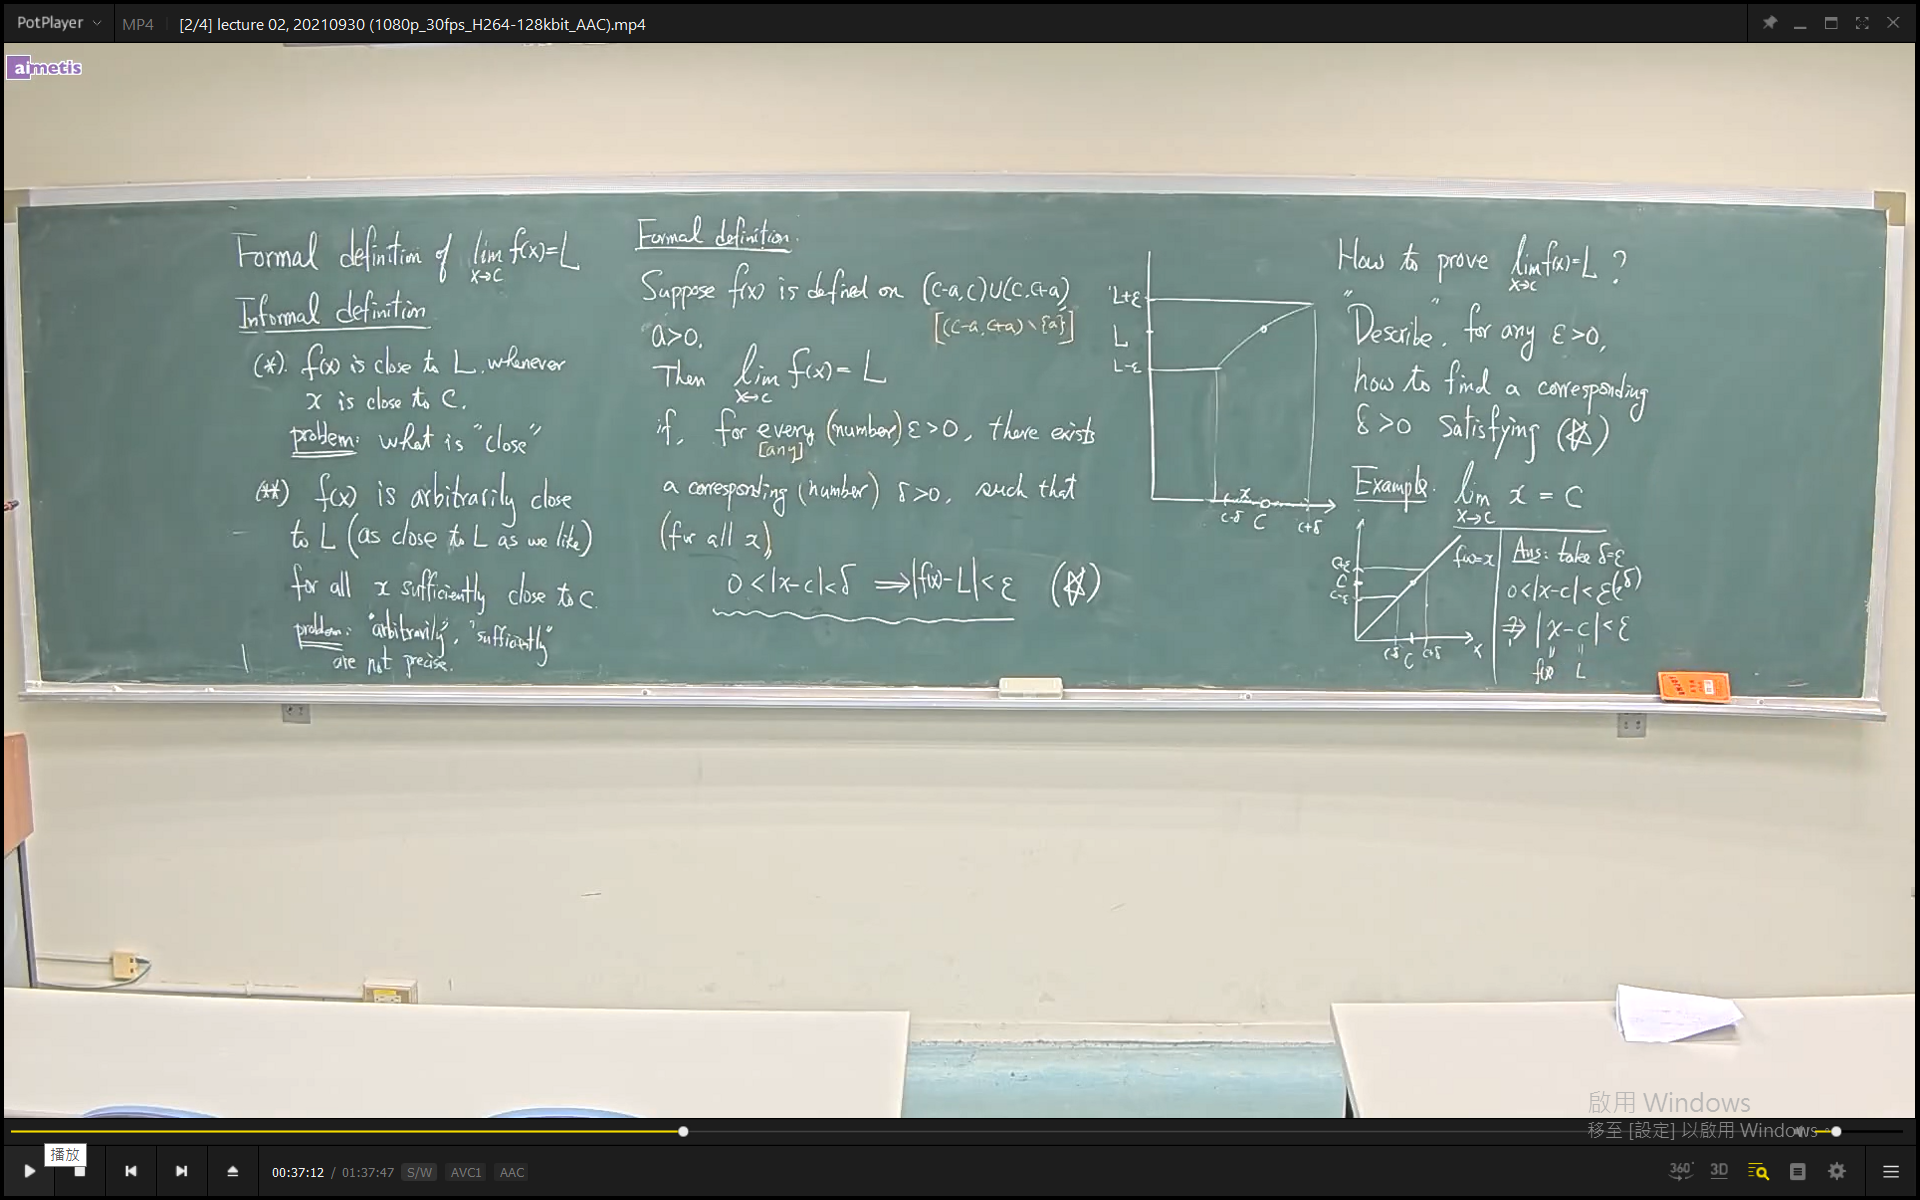 PotPlayer
MP4
[2/4] lecture 02, 20210930 (1080p_30fps_H264-128kbit_AAC).mp4
aimetis
Formal definition of lim f(x)=L
x→c
Informal definition
(*). f(x) is close to L. whenever
x is close to C.
problem: what is "close"
(**) f(x) is arbitrarily close
to L (as close to L as we like)
for all x sufficiently close to C.
problem: "arbitrarily", "sufficiently"
are not precise.
Formal definition.
Suppose f(x) is defined on (c-a,c)∪(c,c+a)
[(c-a,c+a)\{a}]
a>0.
Then lim f(x) = L
x→c
if, for every (number) ε>0, there exists
[any]
a corresponding (number) δ>0, such that
(for all x)
0<|x-c|<δ ⇒|f(x)-L|<ε (☆)
L+ε
L
L-ε
x
c-δ C c+δ
How to prove lim f(x)=L ?
x→c
"Describe". for any ε>0,
how to find a corresponding
δ>0 satisfying (☆)
Example. lim x = C
x→c
c+ε
C
c-ε
f(x)=x
c-δ C c+δ x
Ans: take δ=ε
0<|x-c|<ε(=δ)
⇒ |x-c|<ε
? 
f(x) L
ENJOY
啟用 Windows
移至 [設定] 以啟用 Windows。
播放
00:37:12 / 01:37:47 S/W AVC1 AAC
360° 3D